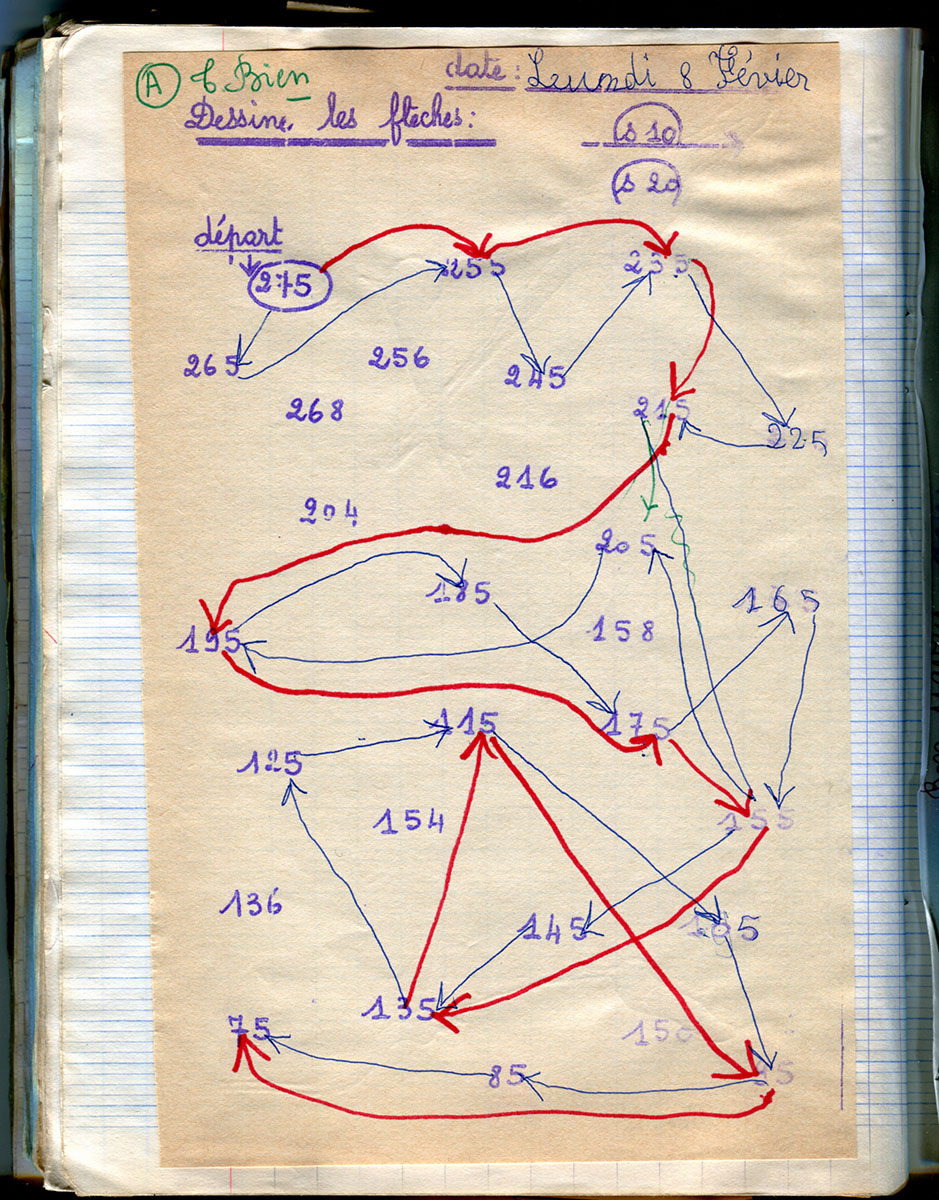 A T. Bien
date: Leundi 8 Févier
Dessine les flèches:
s 10
s 20
départ
275 255 235
265 256 245
268 215
225
216
204
205
185 165
195 158
115 175
125
154 155
136
145 105
135
75 150
85 95